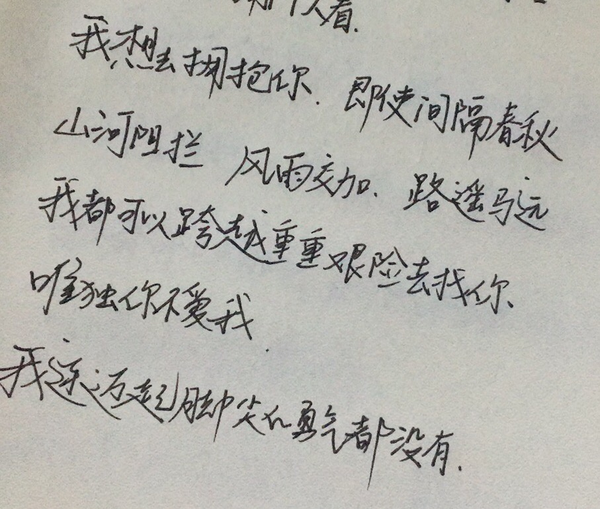 个人看.
我只想去拥抱你.即使间隔春秋
山河阻拦 风雨交加.路遥马远
我都可以跨越重重艰险去找你.
唯独你不爱我.
我连迈起脚尖的勇气都没有.